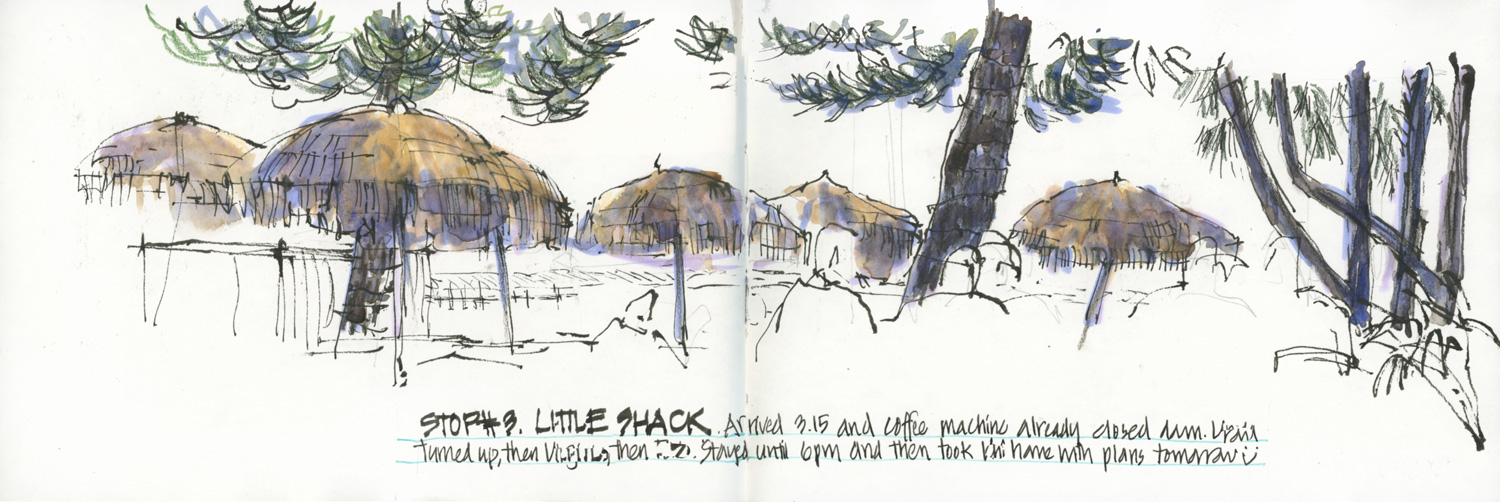 STOP#3. LITTLE SHACK. Arrived 3.15 and coffee machine already closed
turned up, then then Stayed until 6pm and then took home with plans tomorrow